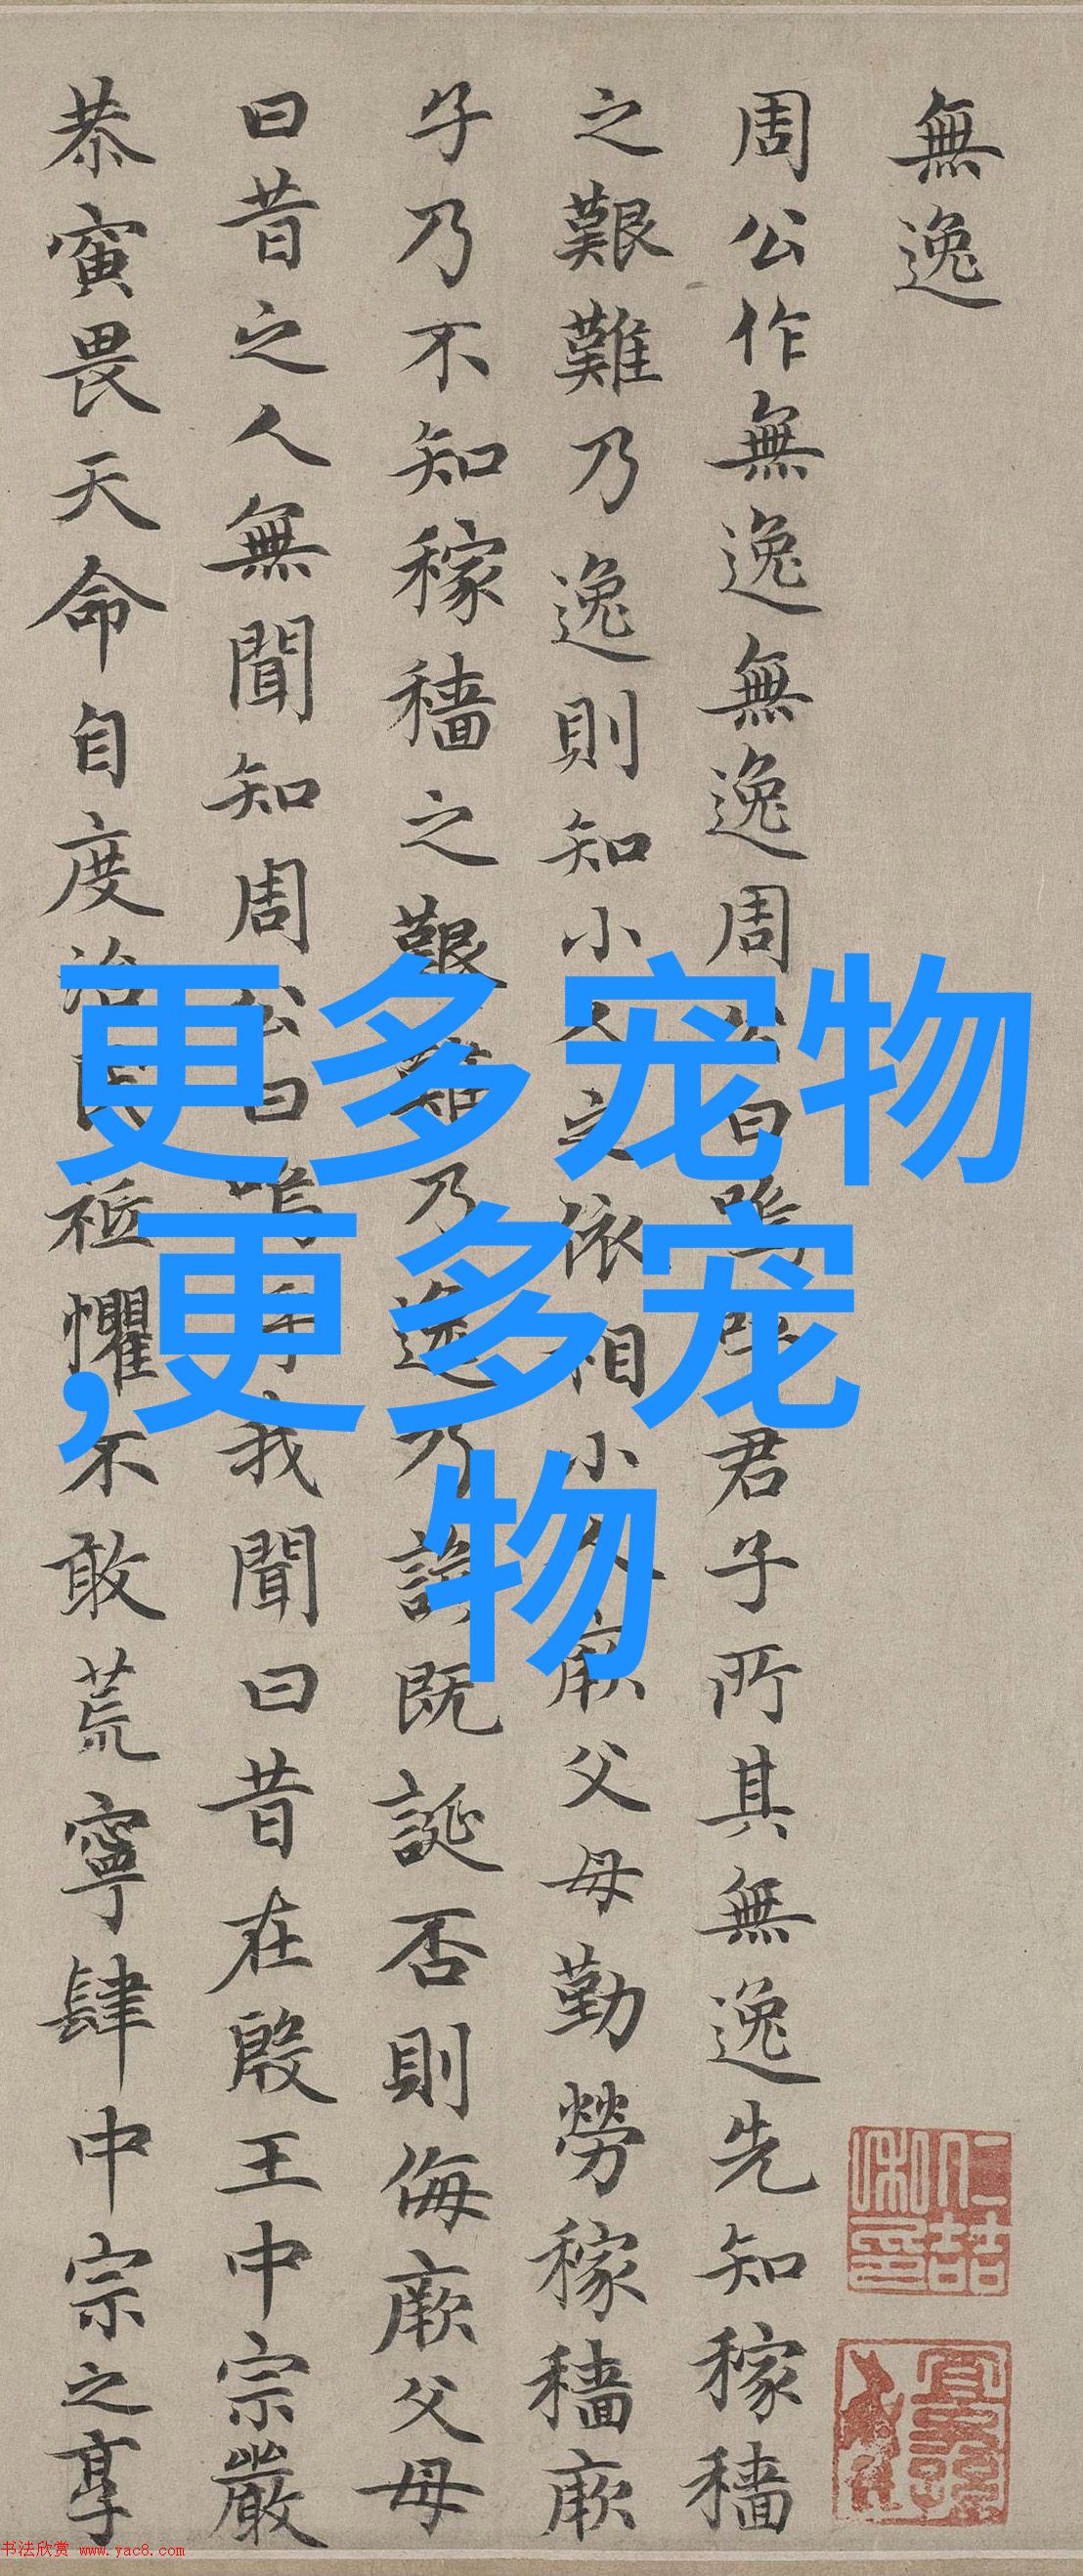 無逸
周公作無逸無逸周公曰嗚呼君子所其無逸先知稼穡
之艱難乃逸則知小人之依相小人厥父母勤勞稼穡厥
子乃不知稼穡之艱難乃逸乃諺既誕否則侮厥父母
曰昔之人無聞知周公曰嗚呼我聞曰昔在殷王中宗嚴
恭寅畏天命自度治民祗懼不敢荒寧肆中宗之享
更多宠物
,更多宠
物
书法欣赏 www.yac8.com